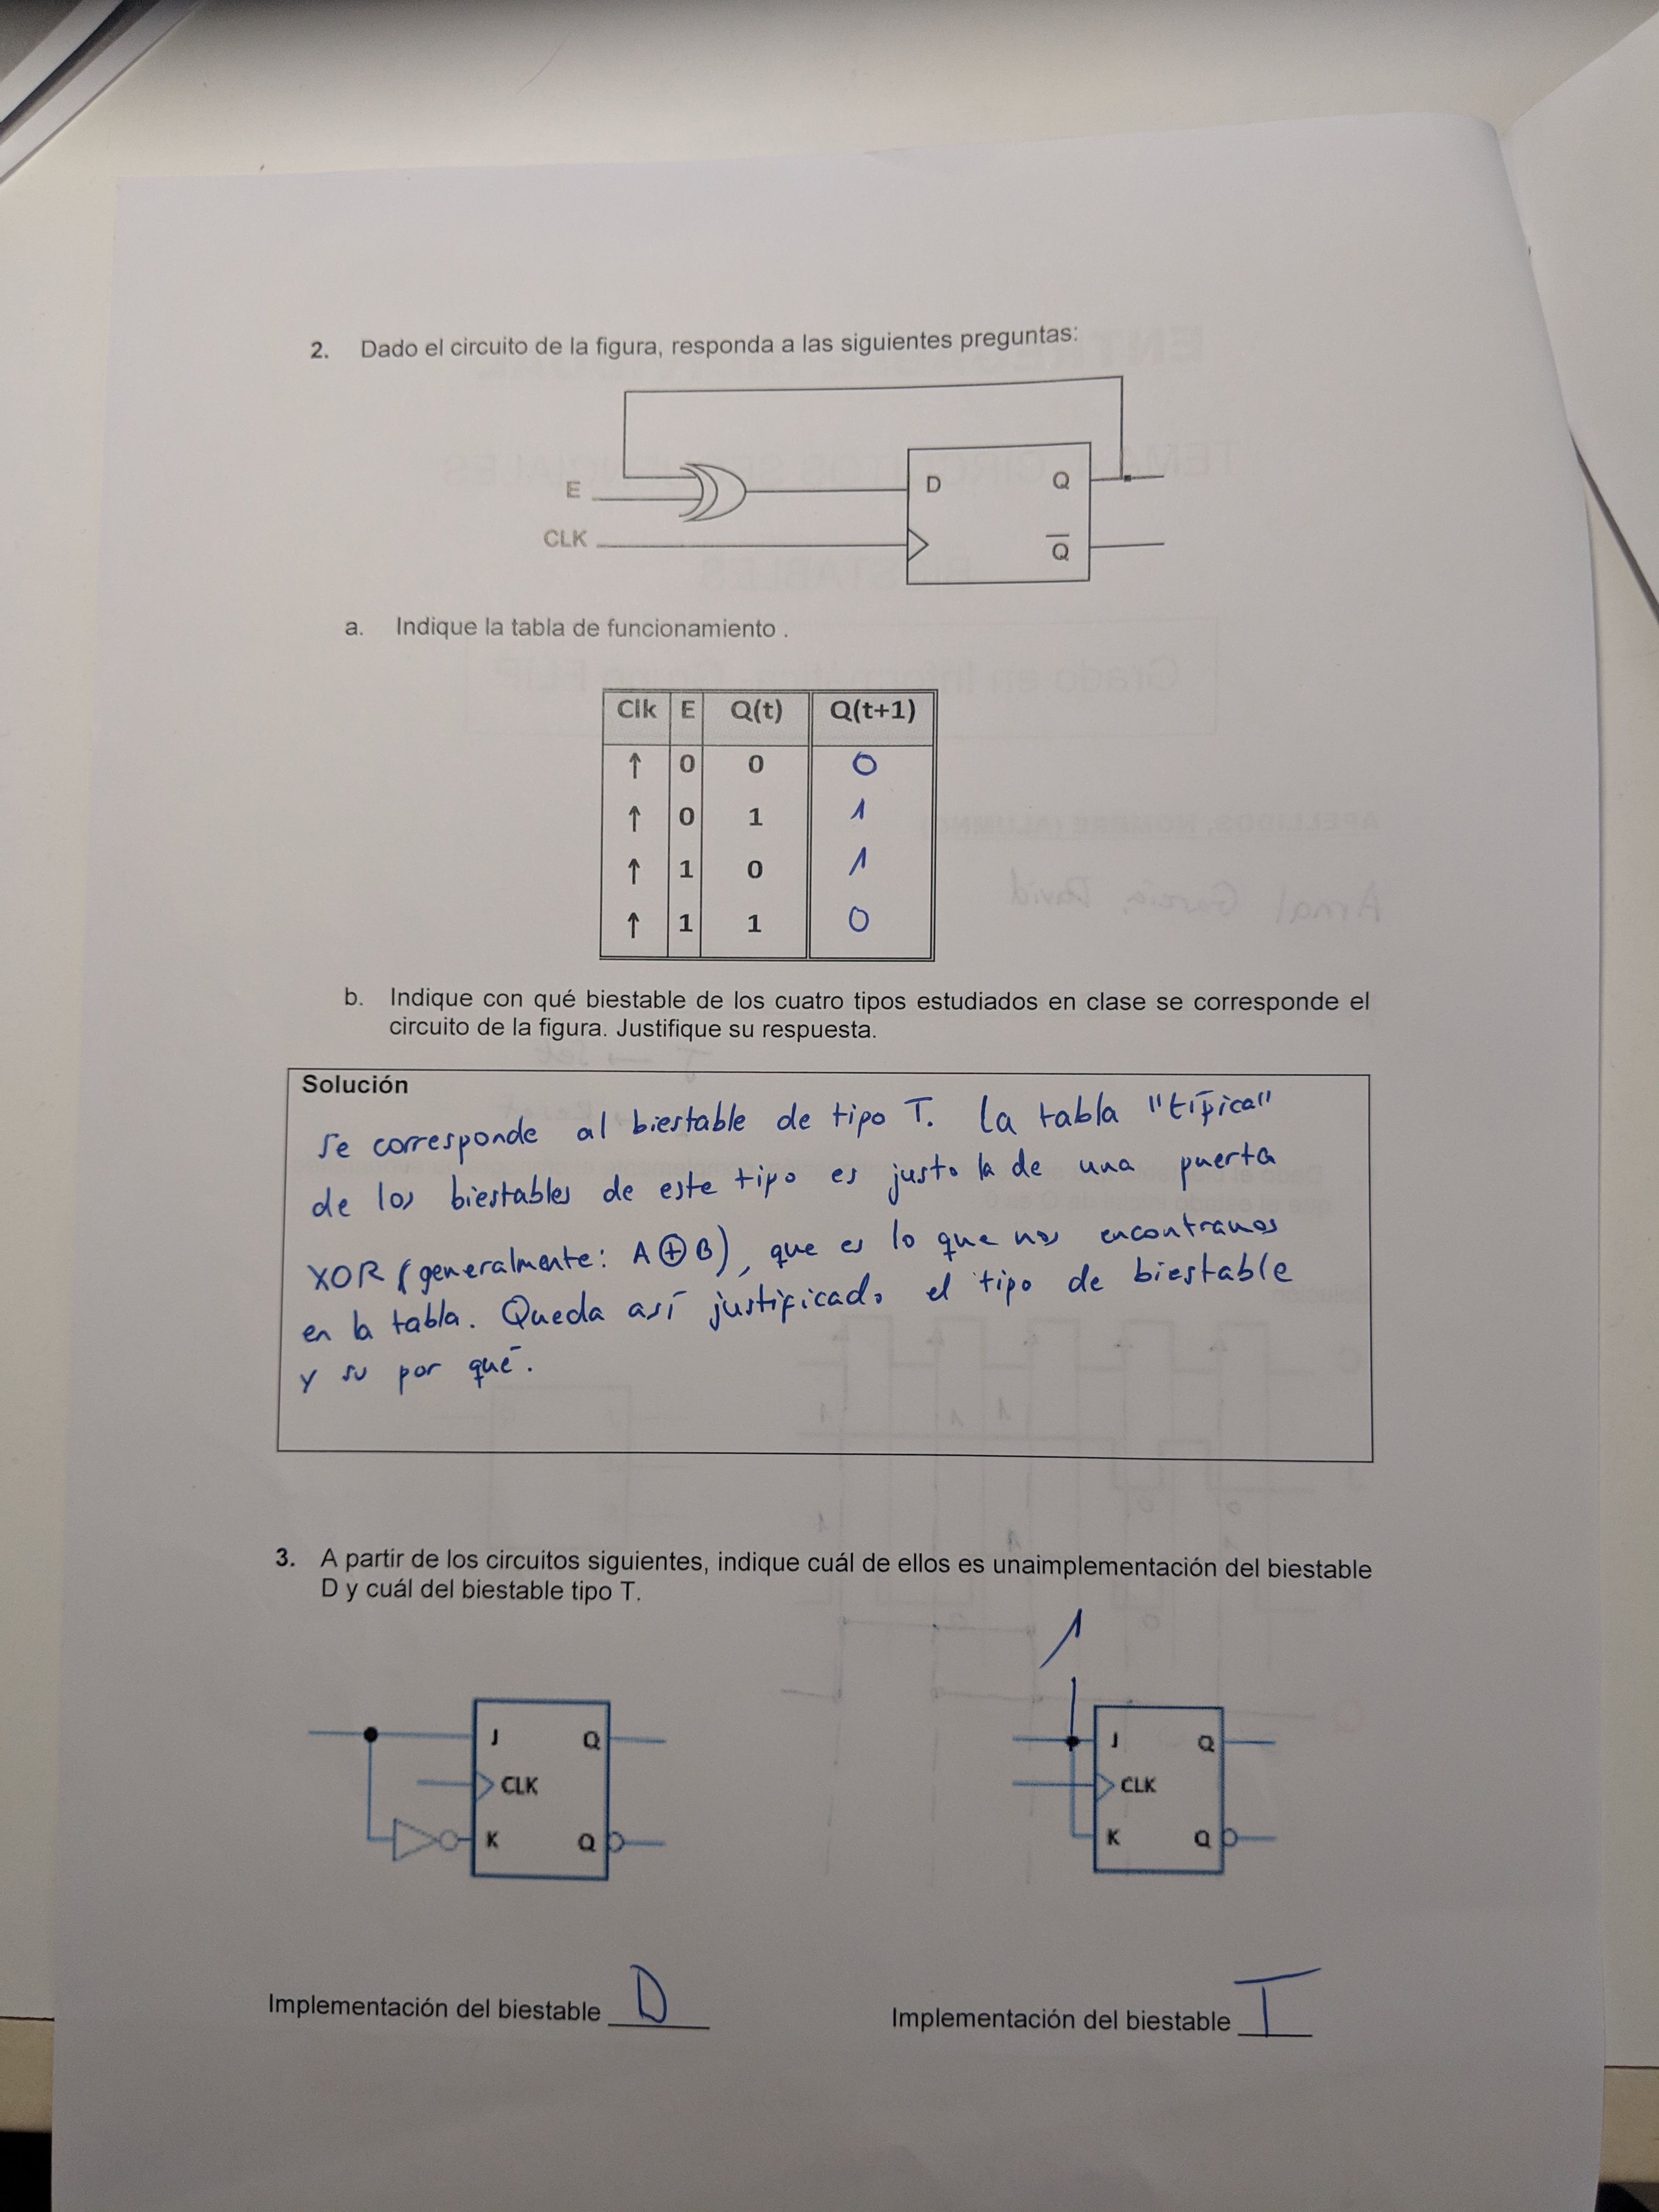 2. Dado el circuito de la figura, responda a las siguientes preguntas:
E
CLK
D
Q
Q̅
a. Indique la tabla de funcionamiento .
Clk E Q(t) Q(t+1)
↑ 0 0 0
↑ 0 1 1
↑ 1 0 1
↑ 1 1 0
b. Indique con qué biestable de los cuatro tipos estudiados en clase se corresponde el
circuito de la figura. Justifique su respuesta.
Solución
Se corresponde al biestable de tipo T. La tabla "típica"
de los biestables de este tipo es justo la de una puerta
XOR (generalmente: A⊕B), que es lo que nos encontramos
en la tabla. Queda así justificado el tipo de biestable
y su por qué.
3. A partir de los circuitos siguientes, indique cuál de ellos es unaimplementación del biestable
D y cuál del biestable tipo T.
1
J Q
CLK
K Q
J Q
CLK
K Q
Implementación del biestable D
Implementación del biestable T